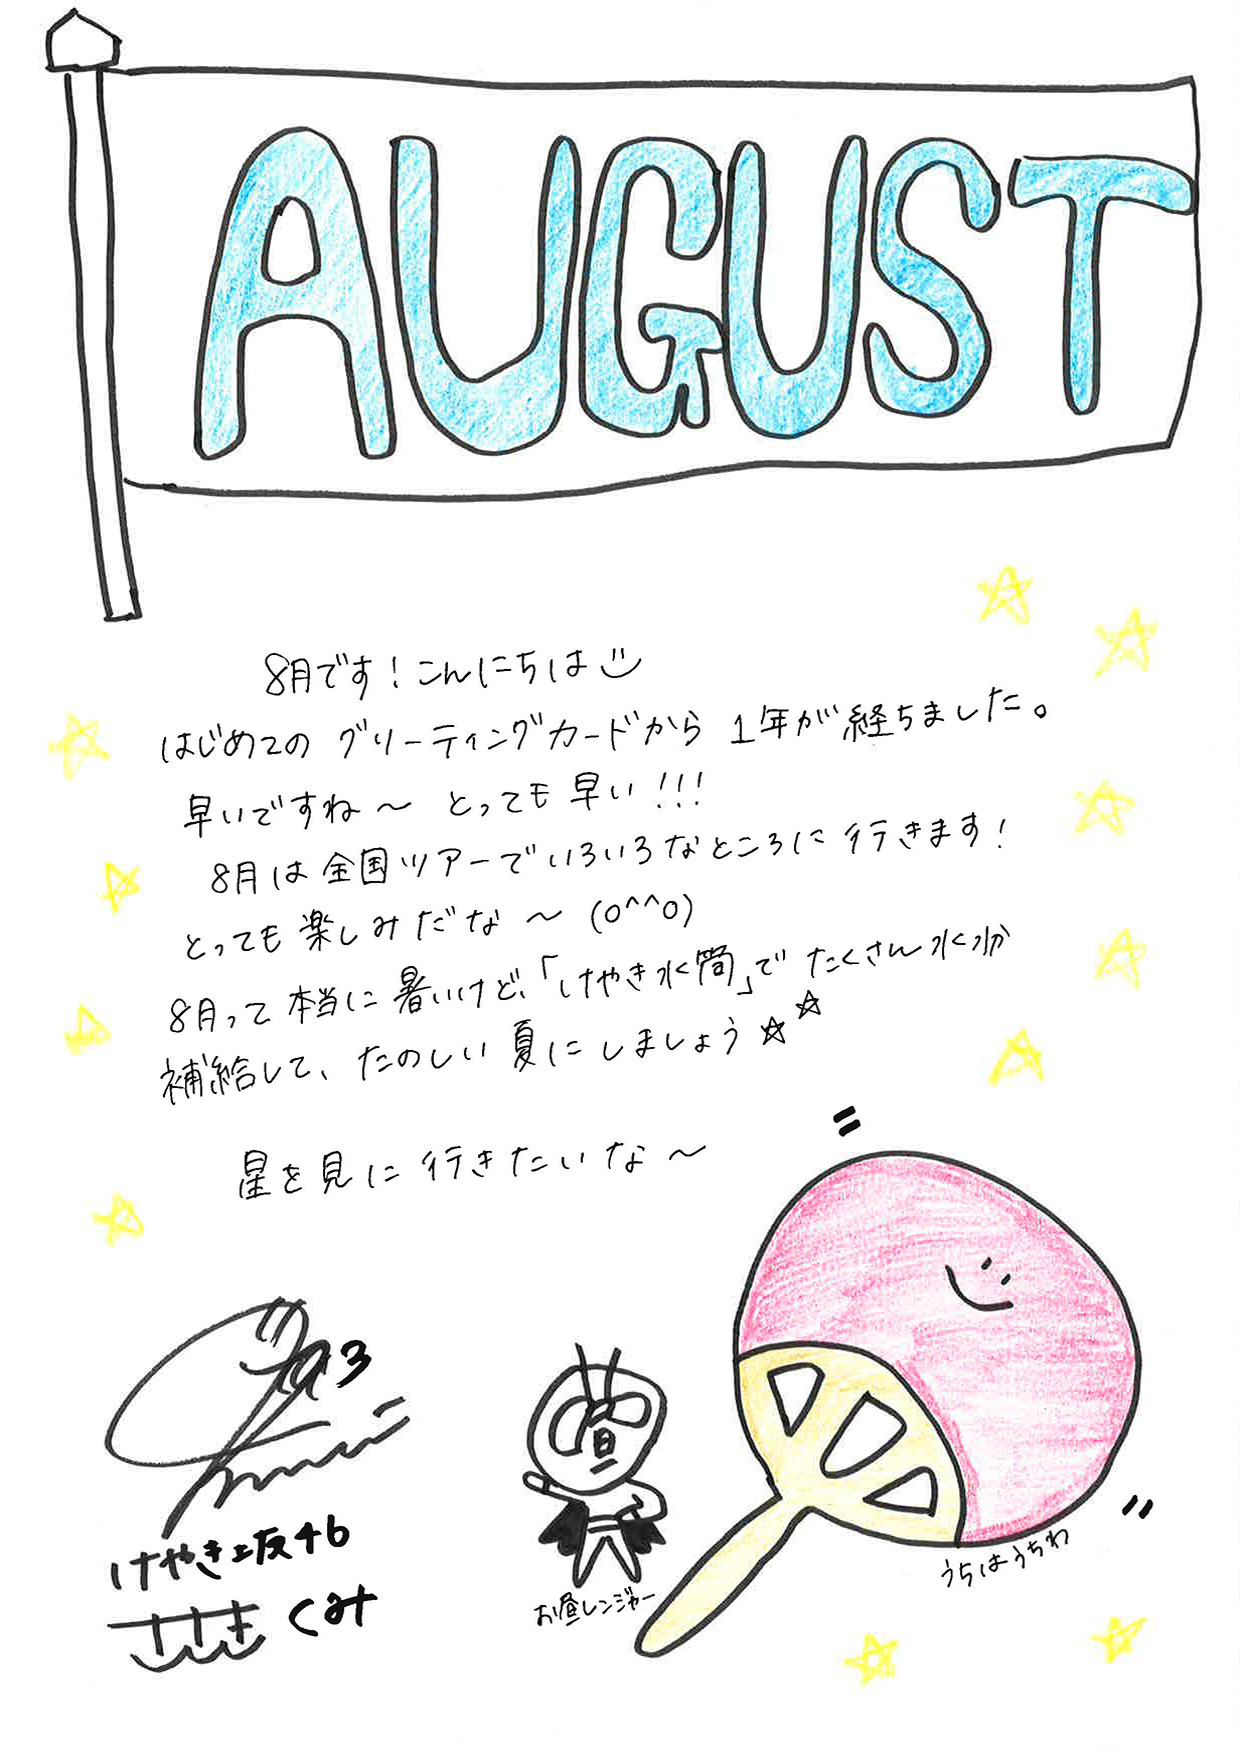 AUGUST
8月です！こんにちは
はじめての グリーティングカードから 1年が経ちました。
早いですね〜 とっても早い!!!
8月は全国ツアーでいろいろなところに行きます！
とっても楽しみだな〜 (o^^o)
8月って本当に暑いけど、「けやき水筒」でたくさん水分
補給して、たのしい夏にしましょう☆☆
星を見に行きたいな〜
けやき坂46
ささき くみ
お昼レンジャー
うちはうちわ